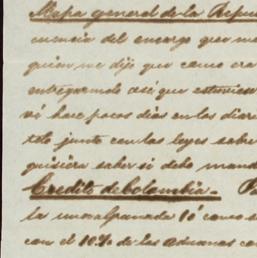 Mapa general de la Repu
cuencia del encargo que me
quien me dijo que como era
entregando así que estuviese
ví hace pocos dias en los diar
teto junto con las leyes sobre
quisiera saber si debo mand
Credito de Colombia.- Pa
la una alpanada 10 cano s
con el 10% de las aduanas co